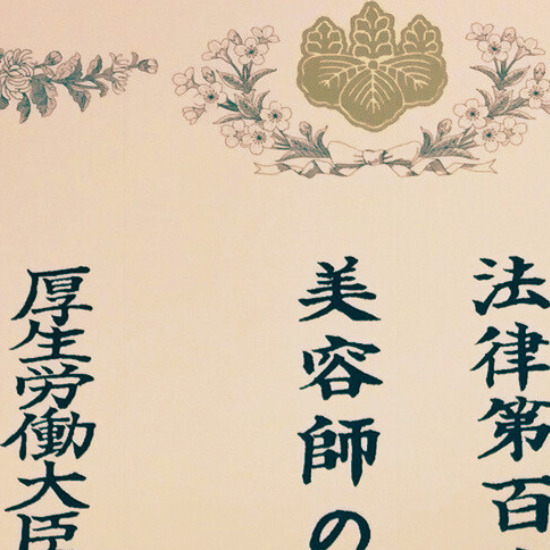 法律第百
美容師の
厚生労働大臣